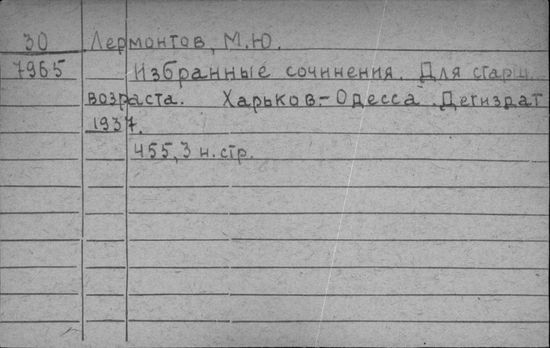 30 Лермонтов, М.Ю.
7965 Избранные сочинения. Для старш.
возраста. Харьков-Одесса. Детиздат
1937.
455,3 н.стр.